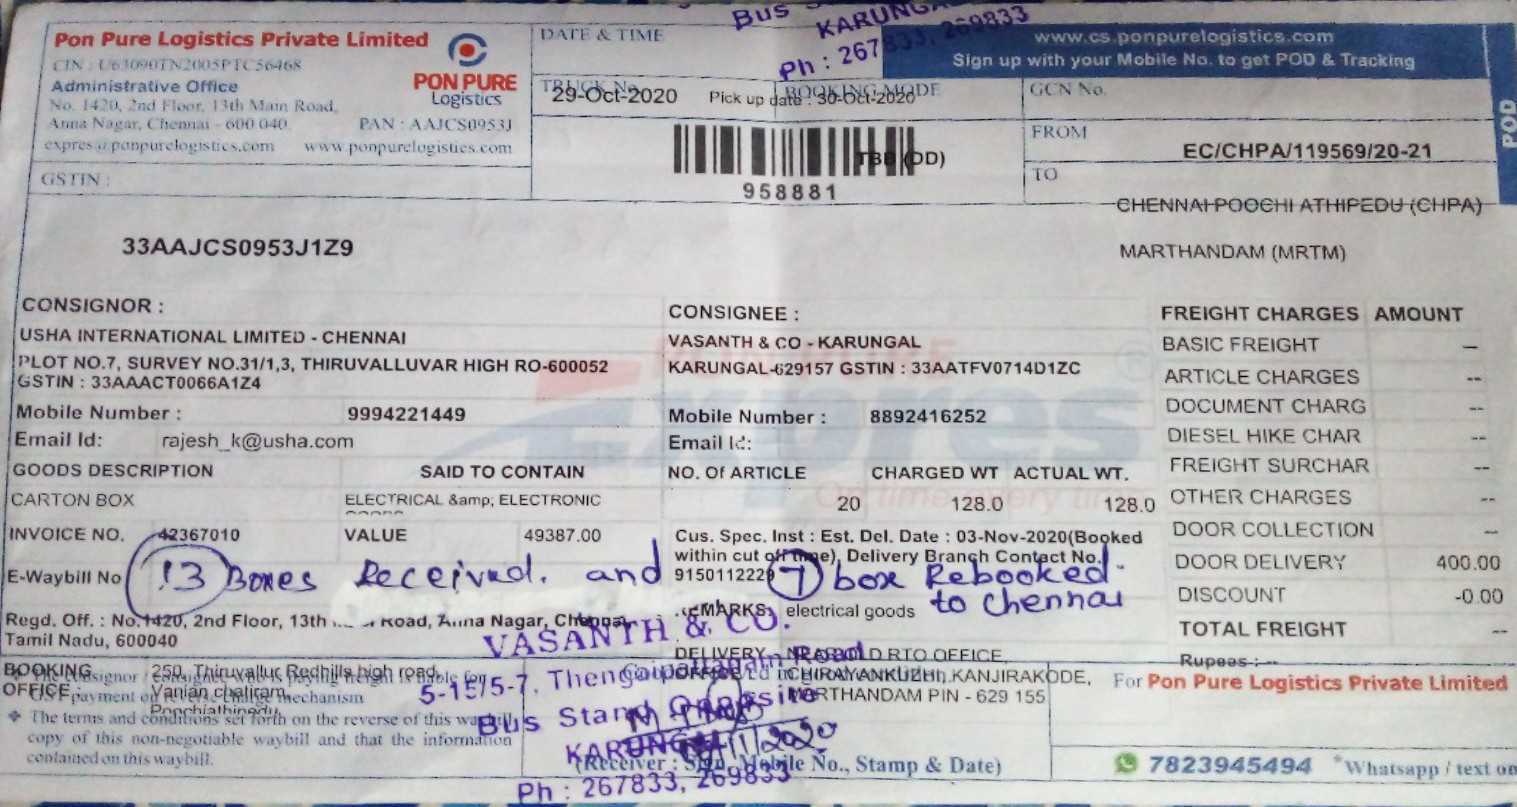 Bus
KARUNGA
Ph : 267833, 269833
Pon Pure Logistics Private Limited
CIN : U63090TN2005PTC56468
Administrative Office
No. 1420, 2nd Floor, 13th Main Road,
Anna Nagar, Chennai - 600 040. PAN : AAJCS0953J
expres@ponpurelogistics.com www.ponpurelogistics.com
PON PURE
Logistics
GSTIN :
33AAJCS0953J1Z9
DATE & TIME
TRUCK No.
29-Oct-2020 Pick up date : 30-Oct-2020
BOOKING MODE
TBB (DD)
958881
www.cs.ponpurelogistics.com
Sign up with your Mobile No. to get POD & Tracking
POD
GCN No.
FROM
EC/CHPA/119569/20-21
TO
CHENNAI POOCHI ATHIPEDU (CHPA)
MARTHANDAM (MRTM)
CONSIGNOR :
USHA INTERNATIONAL LIMITED - CHENNAI
PLOT NO.7, SURVEY NO.31/1,3, THIRUVALLUVAR HIGH RO-600052
GSTIN : 33AAACT0066A1Z4
Mobile Number : 9994221449
Email Id: rajesh_k@usha.com
CONSIGNEE :
VASANTH & CO - KARUNGAL
KARUNGAL-629157 GSTIN : 33AATFV0714D1ZC
Mobile Number : 8892416252
Email Id:
GOODS DESCRIPTION SAID TO CONTAIN
CARTON BOX ELECTRICAL &amp; ELECTRONIC
INVOICE NO. 42367010 VALUE 49387.00
E-Waybill No
NO. Of ARTICLE CHARGED WT ACTUAL WT.
20 128.0 128.0
Cus. Spec. Inst : Est. Del. Date : 03-Nov-2020(Booked
within cut off time), Delivery Branch Contact No.
9150112229
13 Boxes Received. and 7 box Rebooked.
to Chennai
REMARKS electrical goods
Regd. Off. : No.1420, 2nd Floor, 13th Main Road, Anna Nagar, Chennai,
Tamil Nadu, 600040
FREIGHT CHARGES AMOUNT
BASIC FREIGHT --
ARTICLE CHARGES --
DOCUMENT CHARG --
DIESEL HIKE CHAR --
FREIGHT SURCHAR --
OTHER CHARGES --
DOOR COLLECTION --
DOOR DELIVERY 400.00
DISCOUNT -0.00
TOTAL FREIGHT --
Rupees : --
BOOKING
OFFICE :
250, Thiruvallur Redhills high road,
payment on reverse charge mechanism
The terms and conditions set forth on the reverse of this waybill
copy of this non-negotiable waybill and that the information
contained on this waybill.
DELIVERY
OFFICE
NEAR OLD RTO OFFICE,
CHIRAYANKUZHI, KANJIRAKODE,
MARTHANDAM PIN - 629 155
VASANTH & CO.
5-15/5-7, Thengaipattanam Road
Bus Stand Opposite
KARUNGAL
Ph : 267833, 269833
(Receiver : Sign, Mobile No., Stamp & Date)
For Pon Pure Logistics Private Limited
7823945494 *Whatsapp / text on